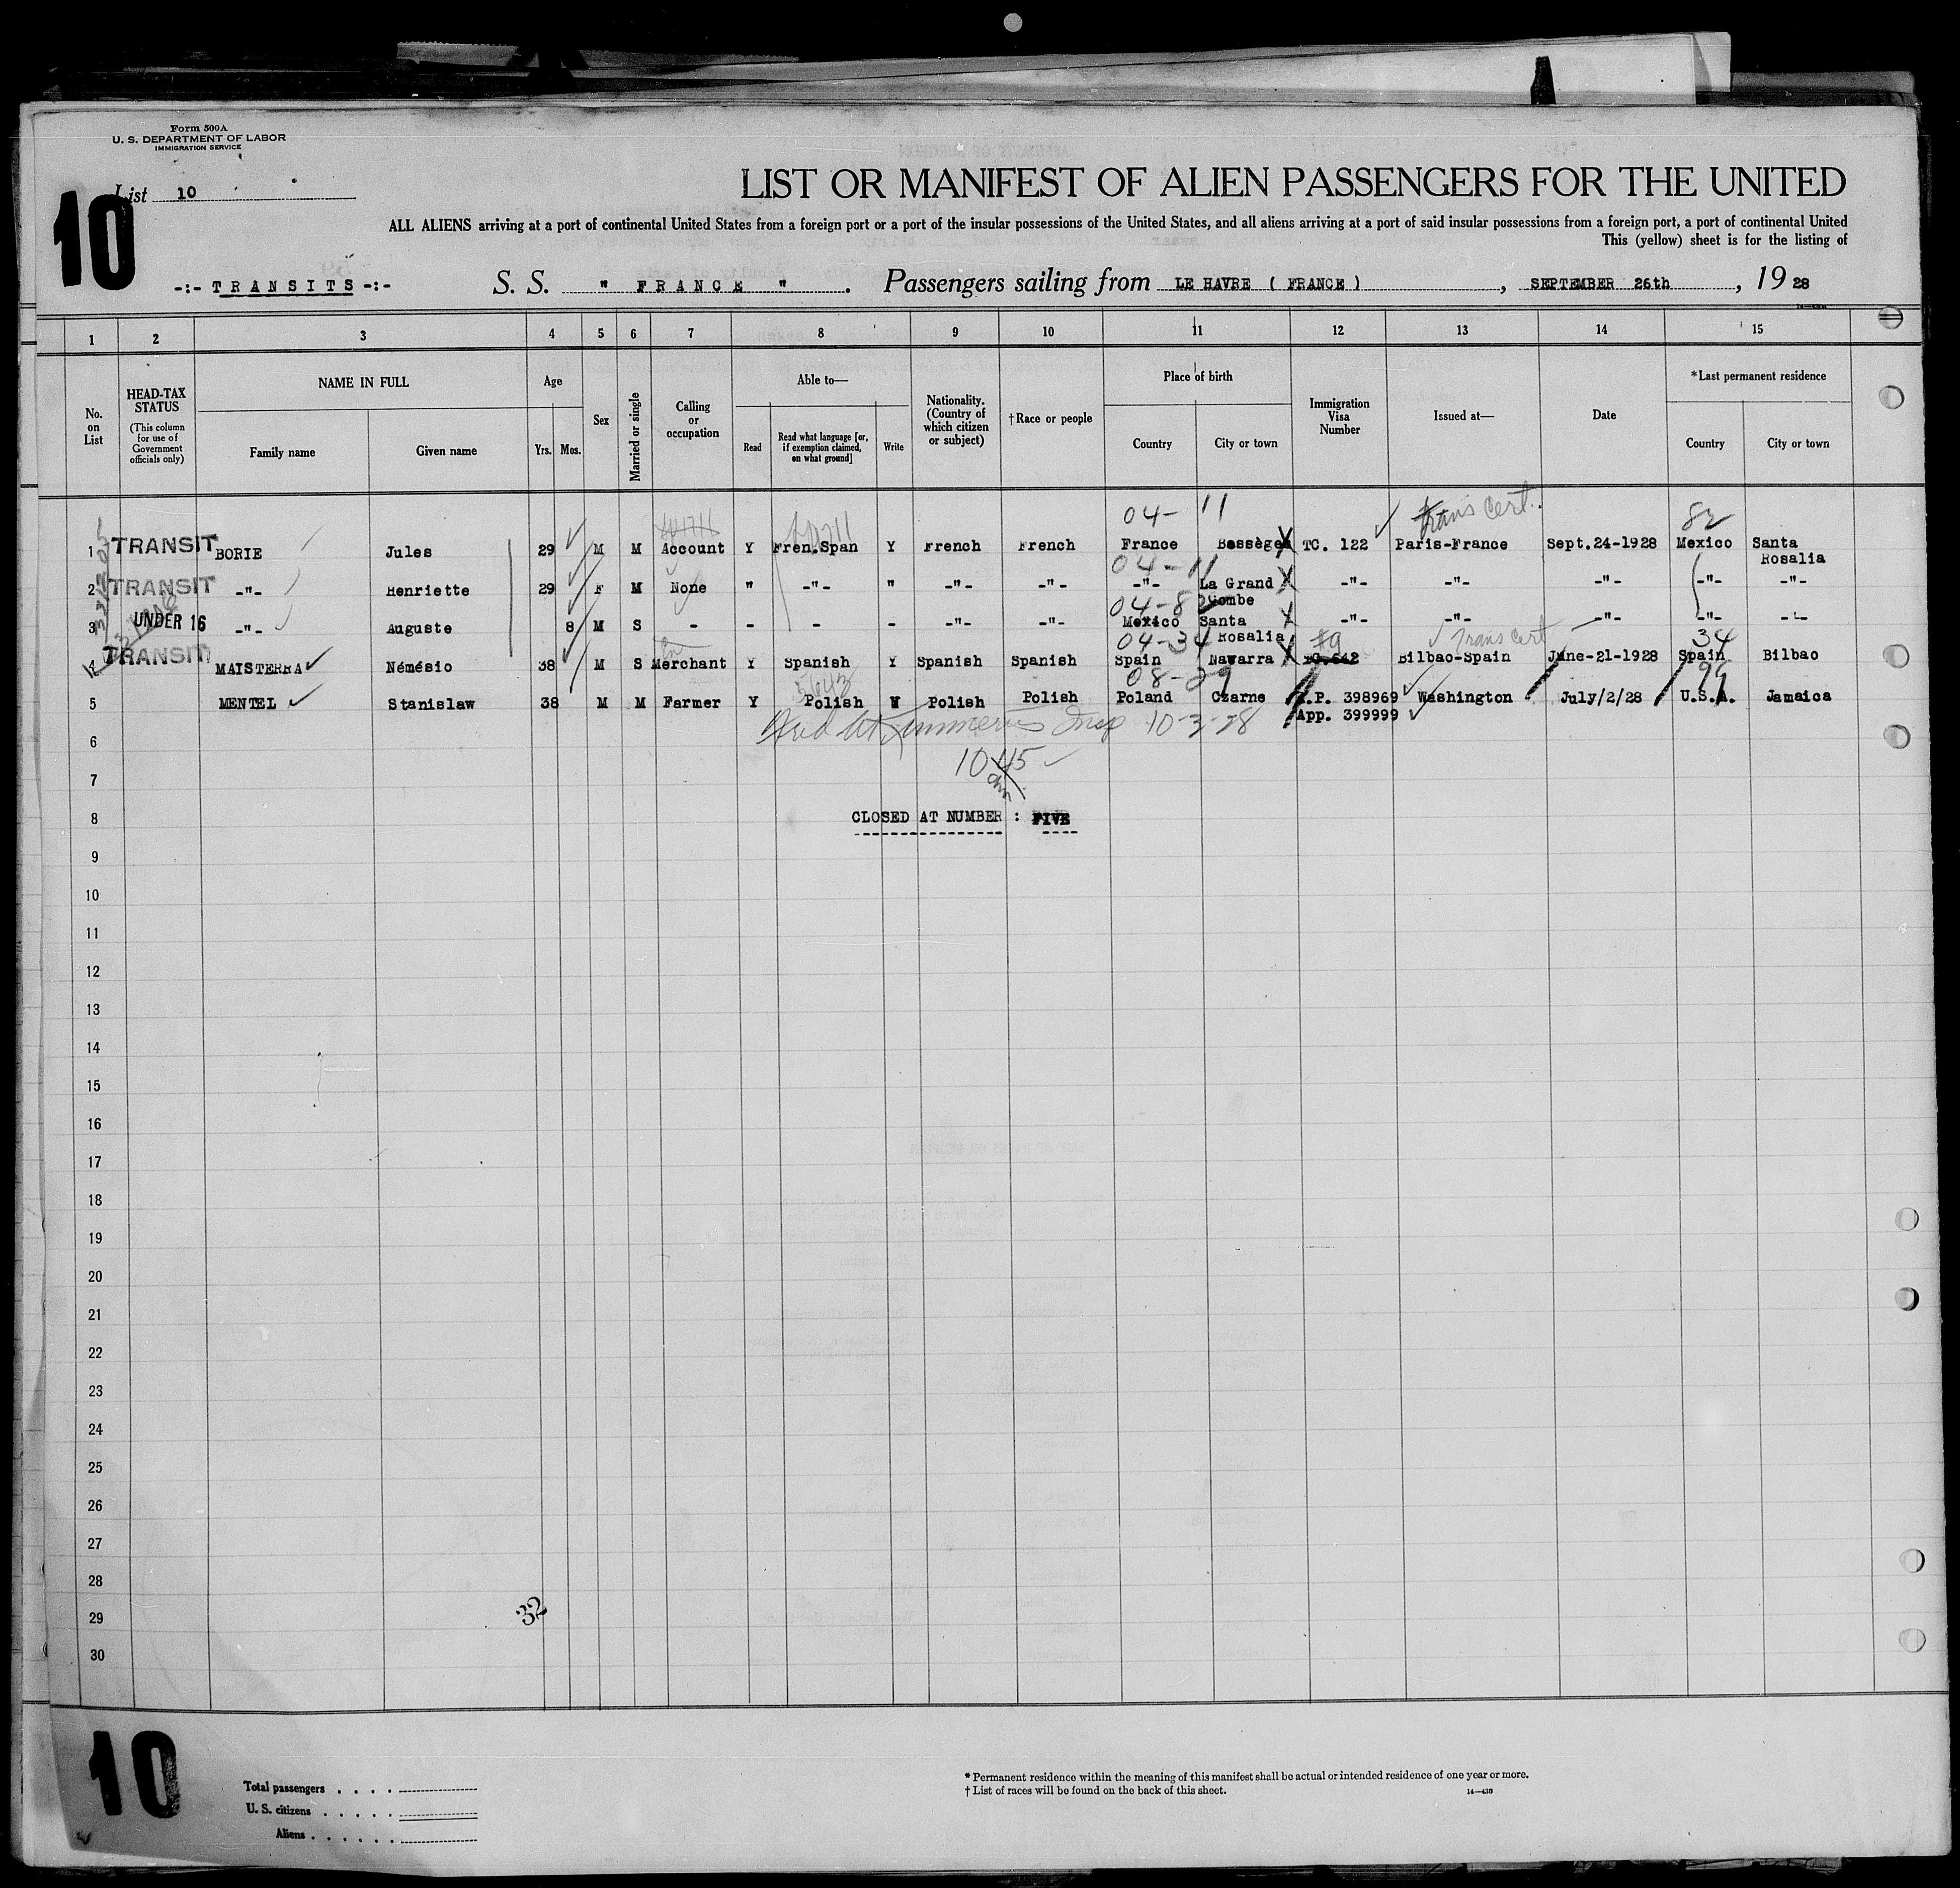 Form 500A
U. S. DEPARTMENT OF LABOR
IMMIGRATION SERVICE
List 10
10
LIST OR MANIFEST OF ALIEN PASSENGERS FOR THE UNITED
ALL ALIENS arriving at a port of continental United States from a foreign port or a port of the insular possessions of the United States, and all aliens arriving at a port of said insular possessions from a foreign port, a port of continental United
This (yellow) sheet is for the listing of
-:- TRANSITS -:- S. S. " FRANCE " . Passengers sailing from LE HAVRE ( FRANCE ) , SEPTEMBER 26th , 19 28
1 2 3 4 5 6 7 8 9 10 11 12 13 14 15
No. on List
HEAD-TAX STATUS (This column for use of Government officials only)
NAME IN FULL
Family name
Given name
Age
Yrs.
Mos.
Sex
Married or single
Calling or occupation
Able to—
Read
Read what language [or, if exemption claimed, on what ground]
Write
Nationality. (Country of which citizen or subject)
†Race or people
Place of birth
Country
City or town
Immigration Visa Number
Issued at—
Date
*Last permanent residence
Country
City or town
04- 11 Trans Cert. 82
1 TRANSIT BORIE Jules 29 M M Account Y Fren.Span Y French French France Bessèges TC. 122 Paris-France Sept.24-1928 Mexico Santa Rosalia
04-11
2 TRANSIT -"- Henriette 29 F M None " -"- " -"- -"- -"- La Grand Combe -"- -"- -"- -"- -"-
04-82
3 UNDER 16 -"- Auguste 8 M S - - - - -"- -"- Mexico Santa Rosalia -"- -"- -"- -"- -"-
04-34 #9 Trans Cert 34
4 TRANSIT MAISTERRA Némésio 38 M S Merchant Y Spanish Y Spanish Spanish Spain Navarra TC.642 Bilbao-Spain June-21-1928 Spain Bilbao
08-29 99
5 MENTEL Stanislaw 38 M M Farmer Y Polish Y Polish Polish Poland Czarne R.P. 398969 Washington July/2/28 U.S.A. Jamaica
App. 399999
10-3-28
6
1045
7
8 CLOSED AT NUMBER : FIVE
9
10
11
12
13
14
15
16
17
18
19
20
21
22
23
24
25
26
27
28
29 32
30
10
Total passengers
U. S. citizens
Aliens
* Permanent residence within the meaning of this manifest shall be actual or intended residence of one year or more.
† List of races will be found on the back of this sheet.
14—430